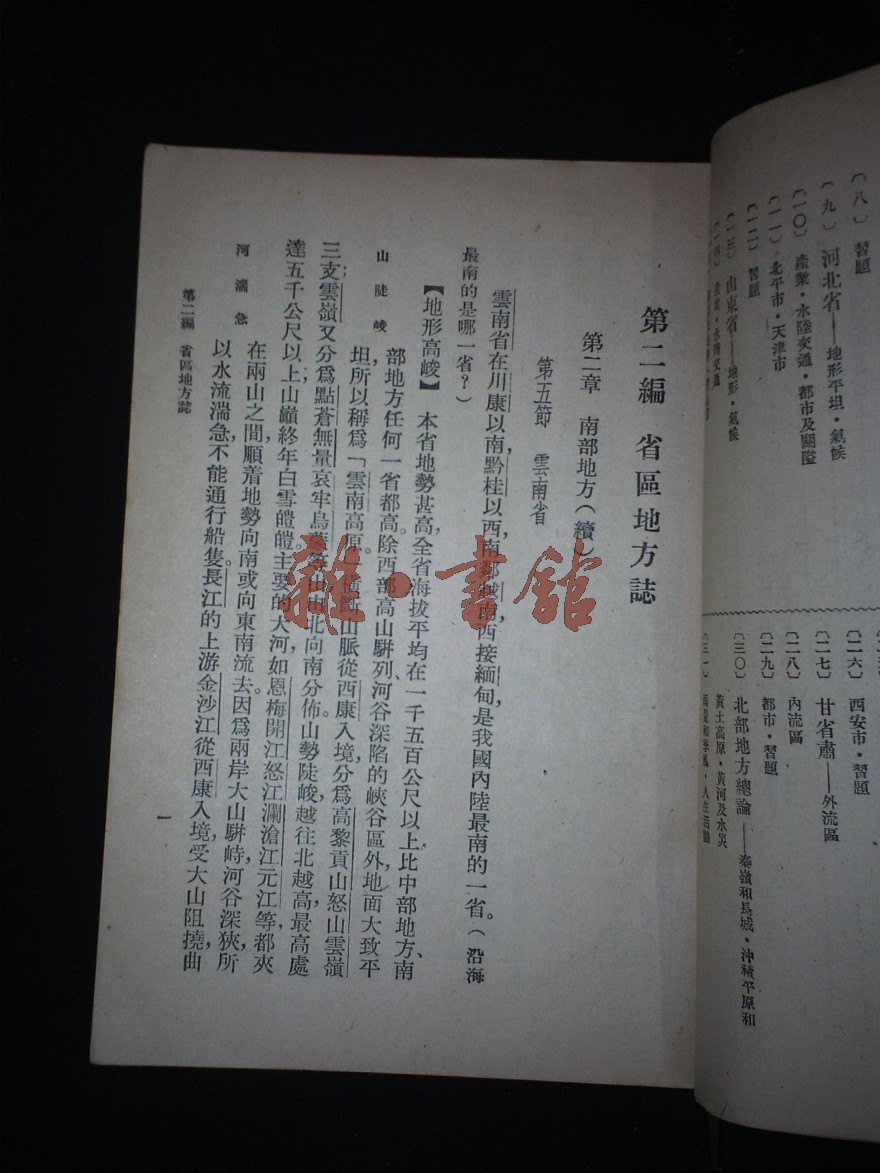 〔八〕 習題
〔九〕 河北省——地形平坦·氣候
〔一〇〕 產業·水陸交通·都市及關隘
〔一一〕 北平市·天津市
〔一二〕 習題
〔一三〕 山東省——地形·氣候
〔一四〕 產業·水陸交通
〔二六〕 西安市·習題
〔二七〕 甘省肅——外流區
〔二八〕 內流區
〔二九〕 都市·習題
〔三〇〕 北部地方總論——秦嶺和長城·沖積平原和
黃土高原·黃河及水災
第二編 省區地方誌
第二章 南部地方(續)
第五節 雲南省
雲南省在川康以南,黔桂以西,南鄰越南,西接緬甸,是我國內陸最南的一省。(沿海
最南的是哪一省?)
【地形高峻】 本省地勢甚高,全省海拔平均在一千五百公尺以上,比中部地方、南
山陡峻
部地方任何一省都高。除西部高山駢列、河谷深陷的峽谷區外,地面大致平
坦,所以稱爲「雲南高原」。橫斷山脈從西康入境,分爲高黎貢山怒山雲嶺
三支;雲嶺又分爲點蒼無量哀牢烏蒙等山由北向南分佈山勢陡峻,越往北越高,最高處
達五千公尺以上,山巔終年白雪皚皚。主要的大河如恩梅開江怒江瀾滄江元江等,都夾
河湍急
在兩山之間,順着地勢向南或向東南流去。因爲兩岸大山駢峙,河谷深狹,所
以水流湍急,不能通行船隻。長江的上游金沙江從西康入境,受大山阻撓,曲
第二編 省區地方誌
一
雜·書館